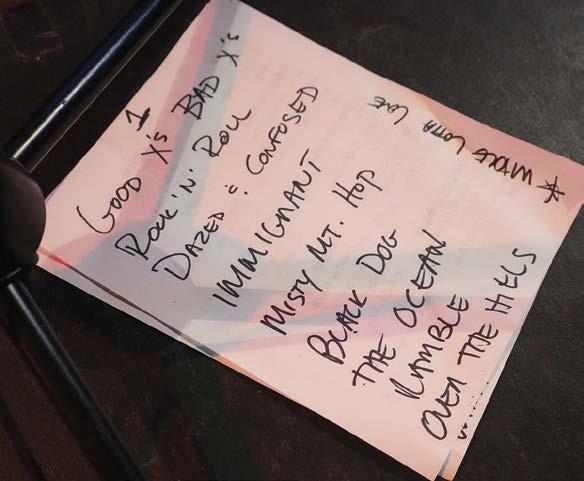 1
GOOD X's BAD X's
ROCK 'N' ROLL
DAZED & CONFUSED
IMMIGRANT
MISTY MT. HOP
BLACK DOG
THE OCEAN
RAMBLE
OVER THE HILLS
* WHOLE LOTTA
LOVE